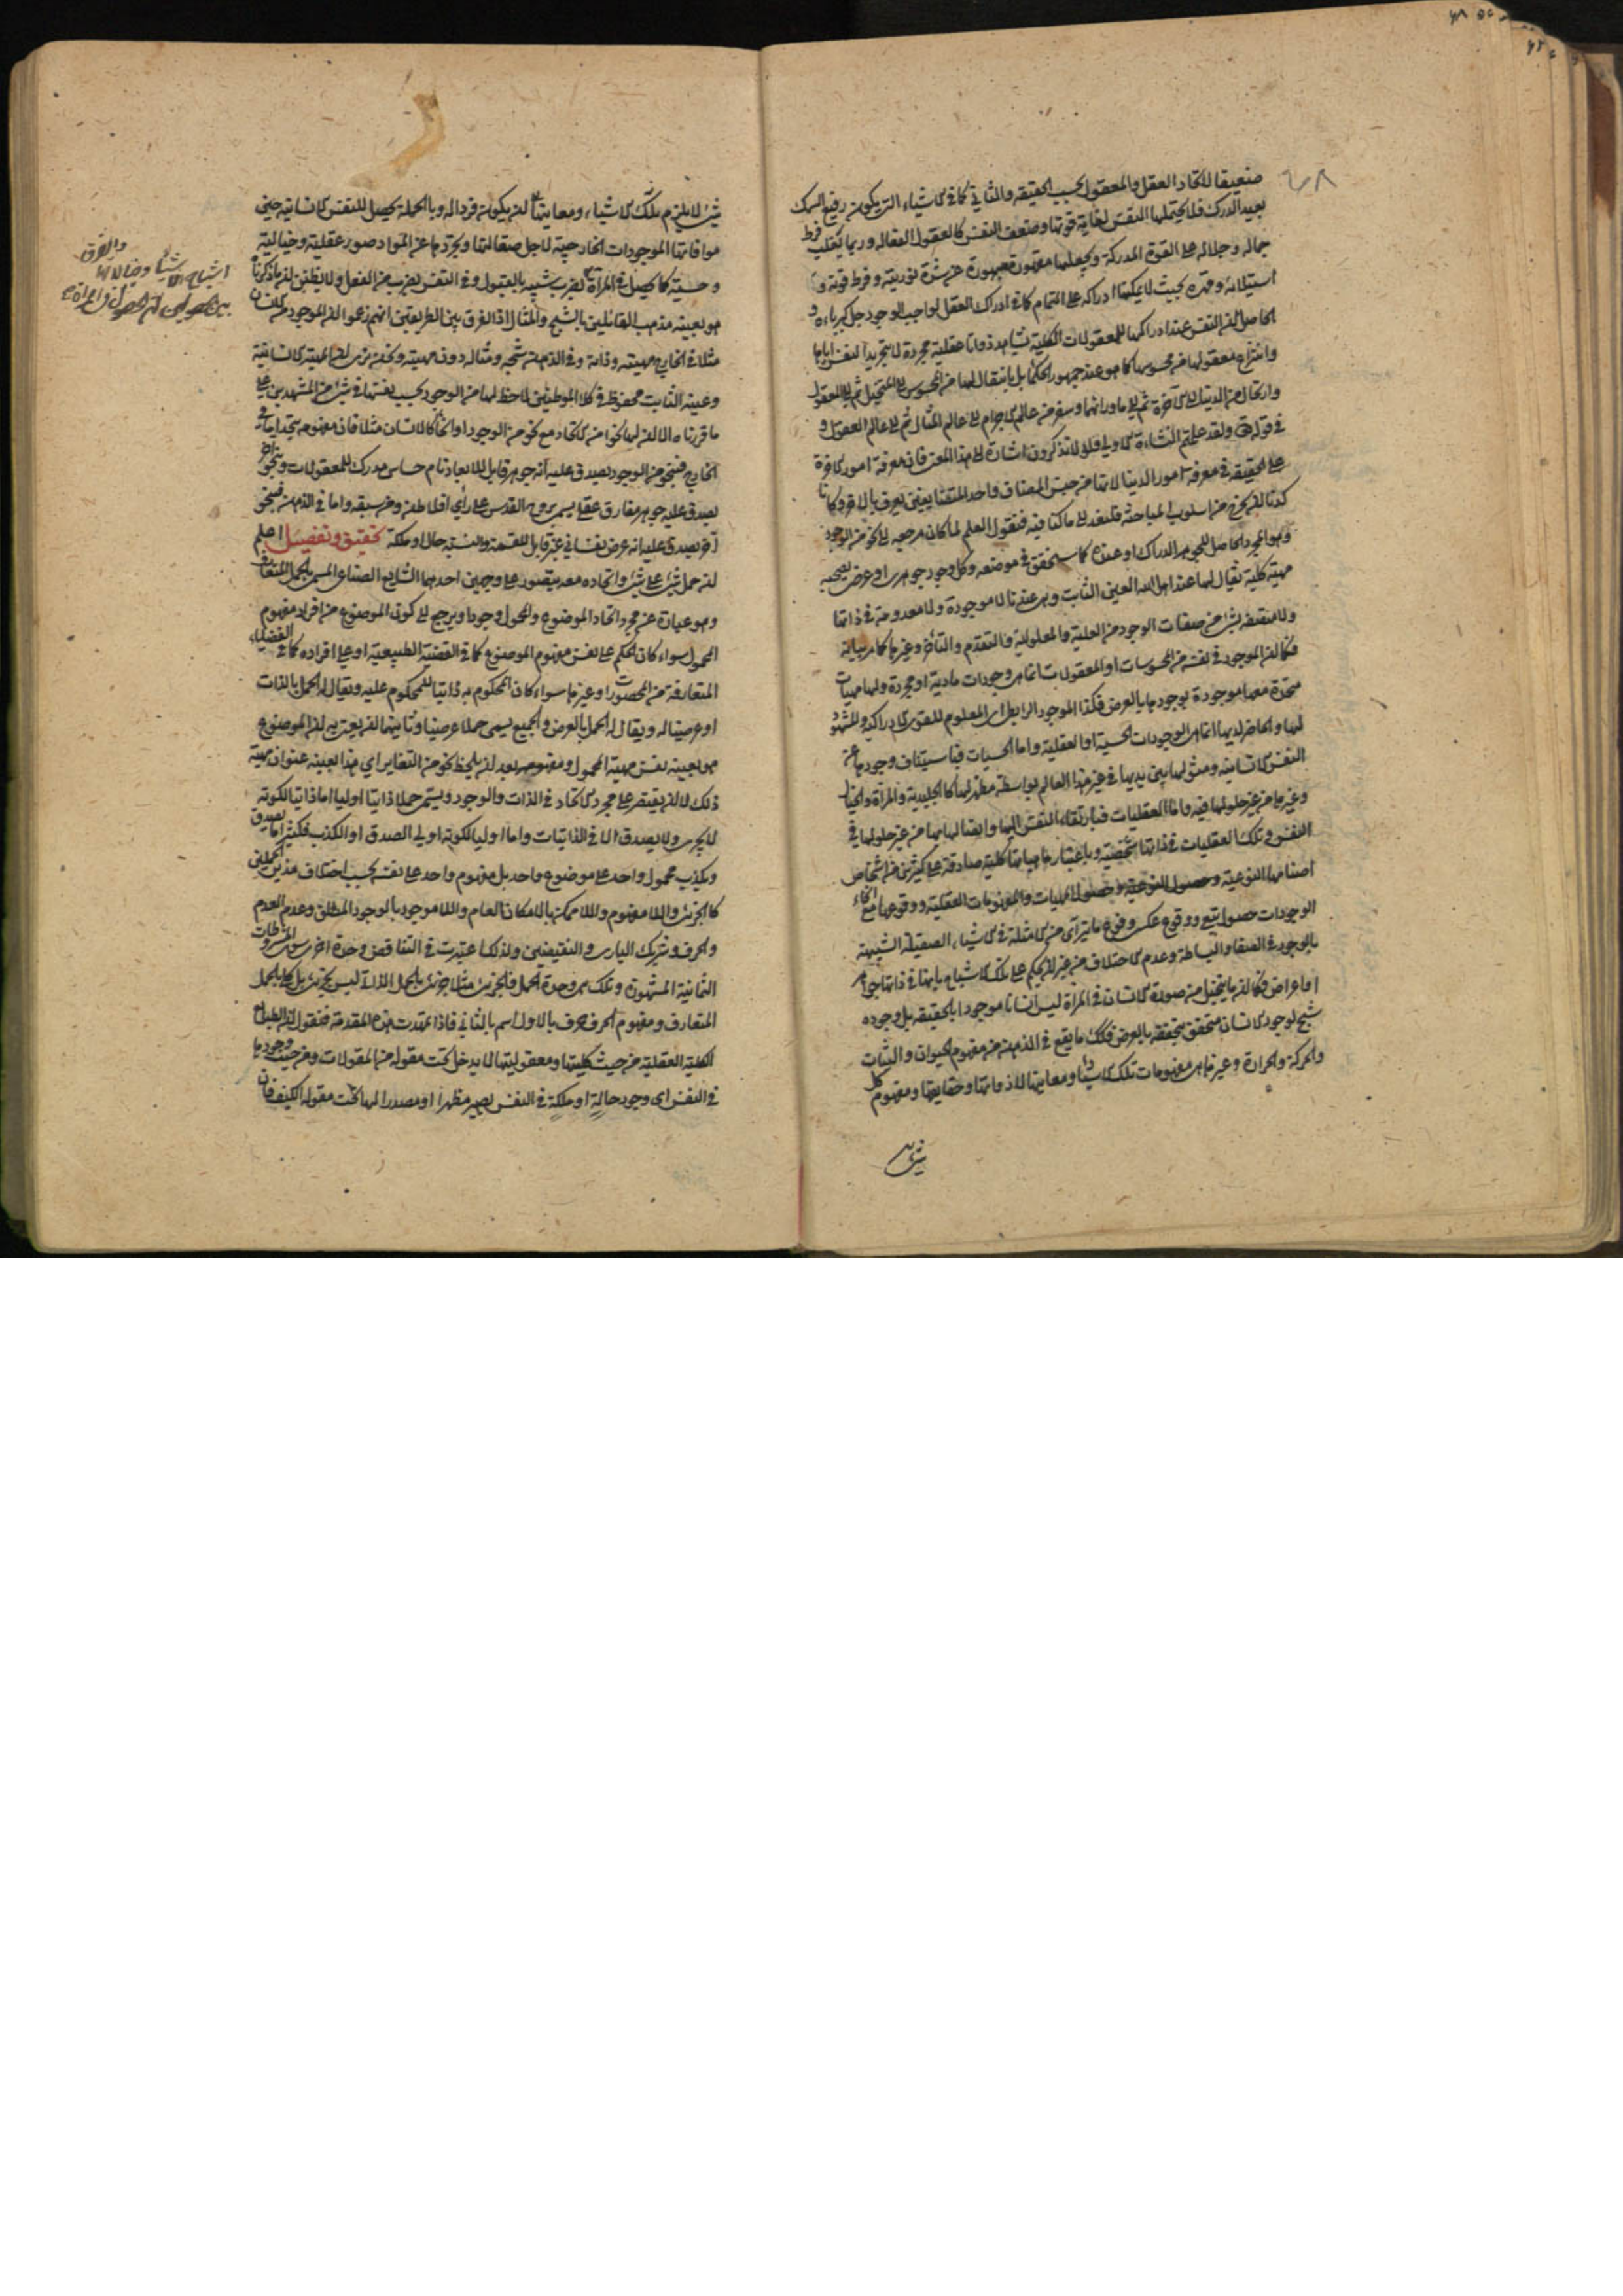 ضعيفا لاتحاد العقل والمعقول بحسب الحقيقه والثانى كما فى الاشياء التى يكون رفيع السمك
بعيد الدرك فلا يحتملها النفس لغاية قوتها وضعف النفس كالعقول الفعاله وربما يغلب فرط
جماله وجلاله على القوة المدركة ويجعلها مقهورة مبهورة عن شدة نوريته وفرط قوته و
استيلائه وقهره بحيث لا يمكنها ادراكه على التمام كما فى ادراك العقل لواجب الوجود جل كبرياءه و
الحاصل ان النفس عند ادراكها للمعقولات الكلية تشاهد ذواتا عقلية مجردة لا بتجريد النفس اياها
وانتزاع معقولها من محسوسها كما هو عند جمهور الحكما بل بانتقال لها من المحسوس الى المتخيل ثم الى المعقول
وارتحال من الدنيا الى الاخرة ثم الى ماورائهما وسفر من عالم الاجرام الى عالم المثال ثم الى عالم العقول و
فى قوله تع ولقد علمتم النشاءة الاولى فلولا تذكرون اشارة الى هذا المعنى فان معرفة امور الاخرة
على الحقيقة فى معرفة امور الدنيا لانها من جنس المضاف واحد المتضايفين يعرف بالاخر وكانا
كدنا ان نخرج من اسلوب المباحثه فلنعد الى ما كنا فيه فنقول العلم لما كان مرجعه الى نحو من الوجود
وهو المجرد الحاصل للجوهر الدراك او عنده كما سنحقق فى موضعه وكل وجود جوهرى او عرضى يصحبه
مهية كلية يقال لها عند اهل الله العين الثابت وهى عندنا لا موجودة ولا معدومة فى ذاتها
ولا متصفه بشئ من صفات الوجود من العلية والمعلولية والتقدم والتاخر وغيرها كما مر بيانه
فكما ان الموجود فى نفسه من المحسوسات او المعقولات انما هى وجودات مادية او مجردة ولها مهيات
متحدة معها موجودة بوجودها بالعرض فكذا الموجود الرابطى اى المعلوم للقوى الادراكية والمشهود
لها والحاضر لديها انما هى الوجودات الحسية او العقلية واما الحسيات فباستيناف وجودها عن
النفس الانسانيه ومثولها بين يديها فى غير هذا العالم بواسطة مظهر لها كالجليدية والمرآة والخيال
وغيرها من غير حلولها فيه واما العقليات فبارتقاء النفس اليها واتصالها بها من غير حلولها فى
النفس وتلك العقليات فى ذاتها شخصية وباعتبار ماهياتها كلية صادقة على كثيرين من اشخاص
اصنامها النوعية وحصول الماهيات والمفهومات العقلية ووقوعها مع انحاء
الوجودات حصول تبعى ووقوع عكسى وقوع ما يترآى من الامثلة فى الاشياء الصقيلة الشبيهة
بالوجود فى الصفا والبساطة وعدم الاختلاف من غير ان يحكم على تلك الاشباح بانها فى ذاتها جواهر
او اعراض فكما ان ما يتخيل من صورة الانسان فى المرآة ليس انسانا موجودا بالحقيقه بل وجوده
شبح لوجود الانسان متحقق بتحققه بالعرض فكذلك ما يقع فى الذهن من مفهوم الحيوان والنبات
والحركة والحرارة وغيرها هى مفهومات تلك الاشياء ومعانيها لا ذواتها وحقايقها ومفهوم كل
شئ لا يلزم
شئ لا يلزم تلك الاشياء ومعانيها ان يكون فردا له وبالجملة يحصل للنفس الانسانيه حين
موافاتها الموجودات الخارجية لاجل صقالتها وتجردها عن المواد صور عقلية وخيالية
وحسية كما يحصل فى المرآة بضرب شبيه بالقبول وفى النفس بضرب من الفعل ولا يظنن ان ما ذكرناه
هو بعينه مذهب القائلين بالشبح والمثال اذ الفرق بين الطريقتين انهم زعموا ان الموجود من الانسان
مثلا فى الخارج مهيته وذاته وفى الذهن شبحه ومثاله دون مهيته ونحن نرى ان المهية الانسانية
وعينه الثابت محفوظ فى كلا الموطنين لا حظ لها من الوجود بحسب نفسها فى شئ من المشهدين على
ما قررناه الا ان لها نحوا من الاتحاد مع نحو من الوجود او انحا كالانسان مثلا فان مفهومه يتحد اما فى
الخارج فبنحو من الوجود يصدق عليه انه جوهر قابل للابعاد نام حساس مدرك للمعقولات وبنحو آخر
يصدق عليه جوهر مفارق عقلى يسمى بروح القدس على رأى افلاطن ومن سبقه واما فى الذهن فبنحو
آخر يصدق عليه انه عرض نفسانى غير قابل للقسمة والنسبة حال او ملكة تحقيق وتفصيل اعلم
ان حمل شئ على شئ واتحاده معه يتصور على وجهين احدهما الشايع الصناعى المسمى بالحمل المتعارف
وهو عبارة عن مجرد اتحاد الموضوع والمحمول وجودا ويرجع الى كون الموضوع من افراد مفهوم
المحمول سواء كان الحكم على نفس مفهوم الموضوع كما فى القضية الطبيعية او على افراده كما فى القضايا
المتعارفة من المحصورات او غيرها سواء كان المحكوم به ذاتيا للمحكوم عليه ويقال له الحمل بالذات
او عرضيا له ويقال له الحمل بالعرض والجميع يسمى حملا عرضيا وثانيهما ان يعنى به ان الموضوع
هو بعينه نفس مهية المحمول ومفهومه بعد ان يلحظ نحو من التغاير اى هذا بعينه عنوان مهية
ذلك لا ان يقتصر على مجرد الاتحاد فى الذات والوجود ويسمى حملا ذاتيا اوليا اما ذاتيا لكونه
لا يجرى ولا يصدق الا فى الذاتيات واما اوليا لكونه اولى الصدق او الكذب فكثيرا ما يصدق
ويكذب محمول واحد على موضوع واحد بل مفهوم واحد على نفسه بحسب اختلاف هذين الحملين
كالجزئى واللا مفهوم واللا ممكن بالامكان العام واللا موجود بالوجود المطلق وعدم العدم
والحرف وشريك البارى والنقيضين ولذلك اعتبرت فى التناقض وحدة اخرى سوى المشروطات
الثمانية المشهورة وتلك هى وحدة الحمل فالجزئى مثلا جزئى بالحمل الذاتى ليس بجزئى بل كلى بالحمل
المتعارف ومفهوم الحرف حرف بالاول اسم بالثانى فاذا تمهدت هذه المقدمة فنقول ان الطبايع
الكلية العقلية من حيث كليتها ومعقوليتها لا يدخل تحت مقولة من المقولات ومن حيث وجودها
فى النفس اى وجود حالة او ملكة فى النفس يصير مظهرا او مصدرا لها تحت مقوله الكيف فان
والفرق
اشباح الاشياء وخيالاتها
بين الحصولين ان الحصول فى المرآة